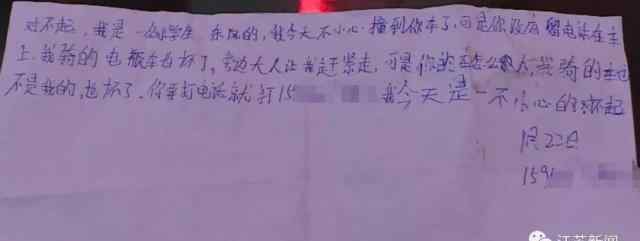 对不起，我是一名小学生 东风的，我今天不小心撞到你车了，可是你没有留电话在车
上，我骑的电瓶车也坏了，旁边大人让我赶紧走，可是你的车怎么办，我骑的车也
不是我的，也坏了。你要打电话就打15 我今天是一不小心的 对不起
月22日
159
江苏新闻